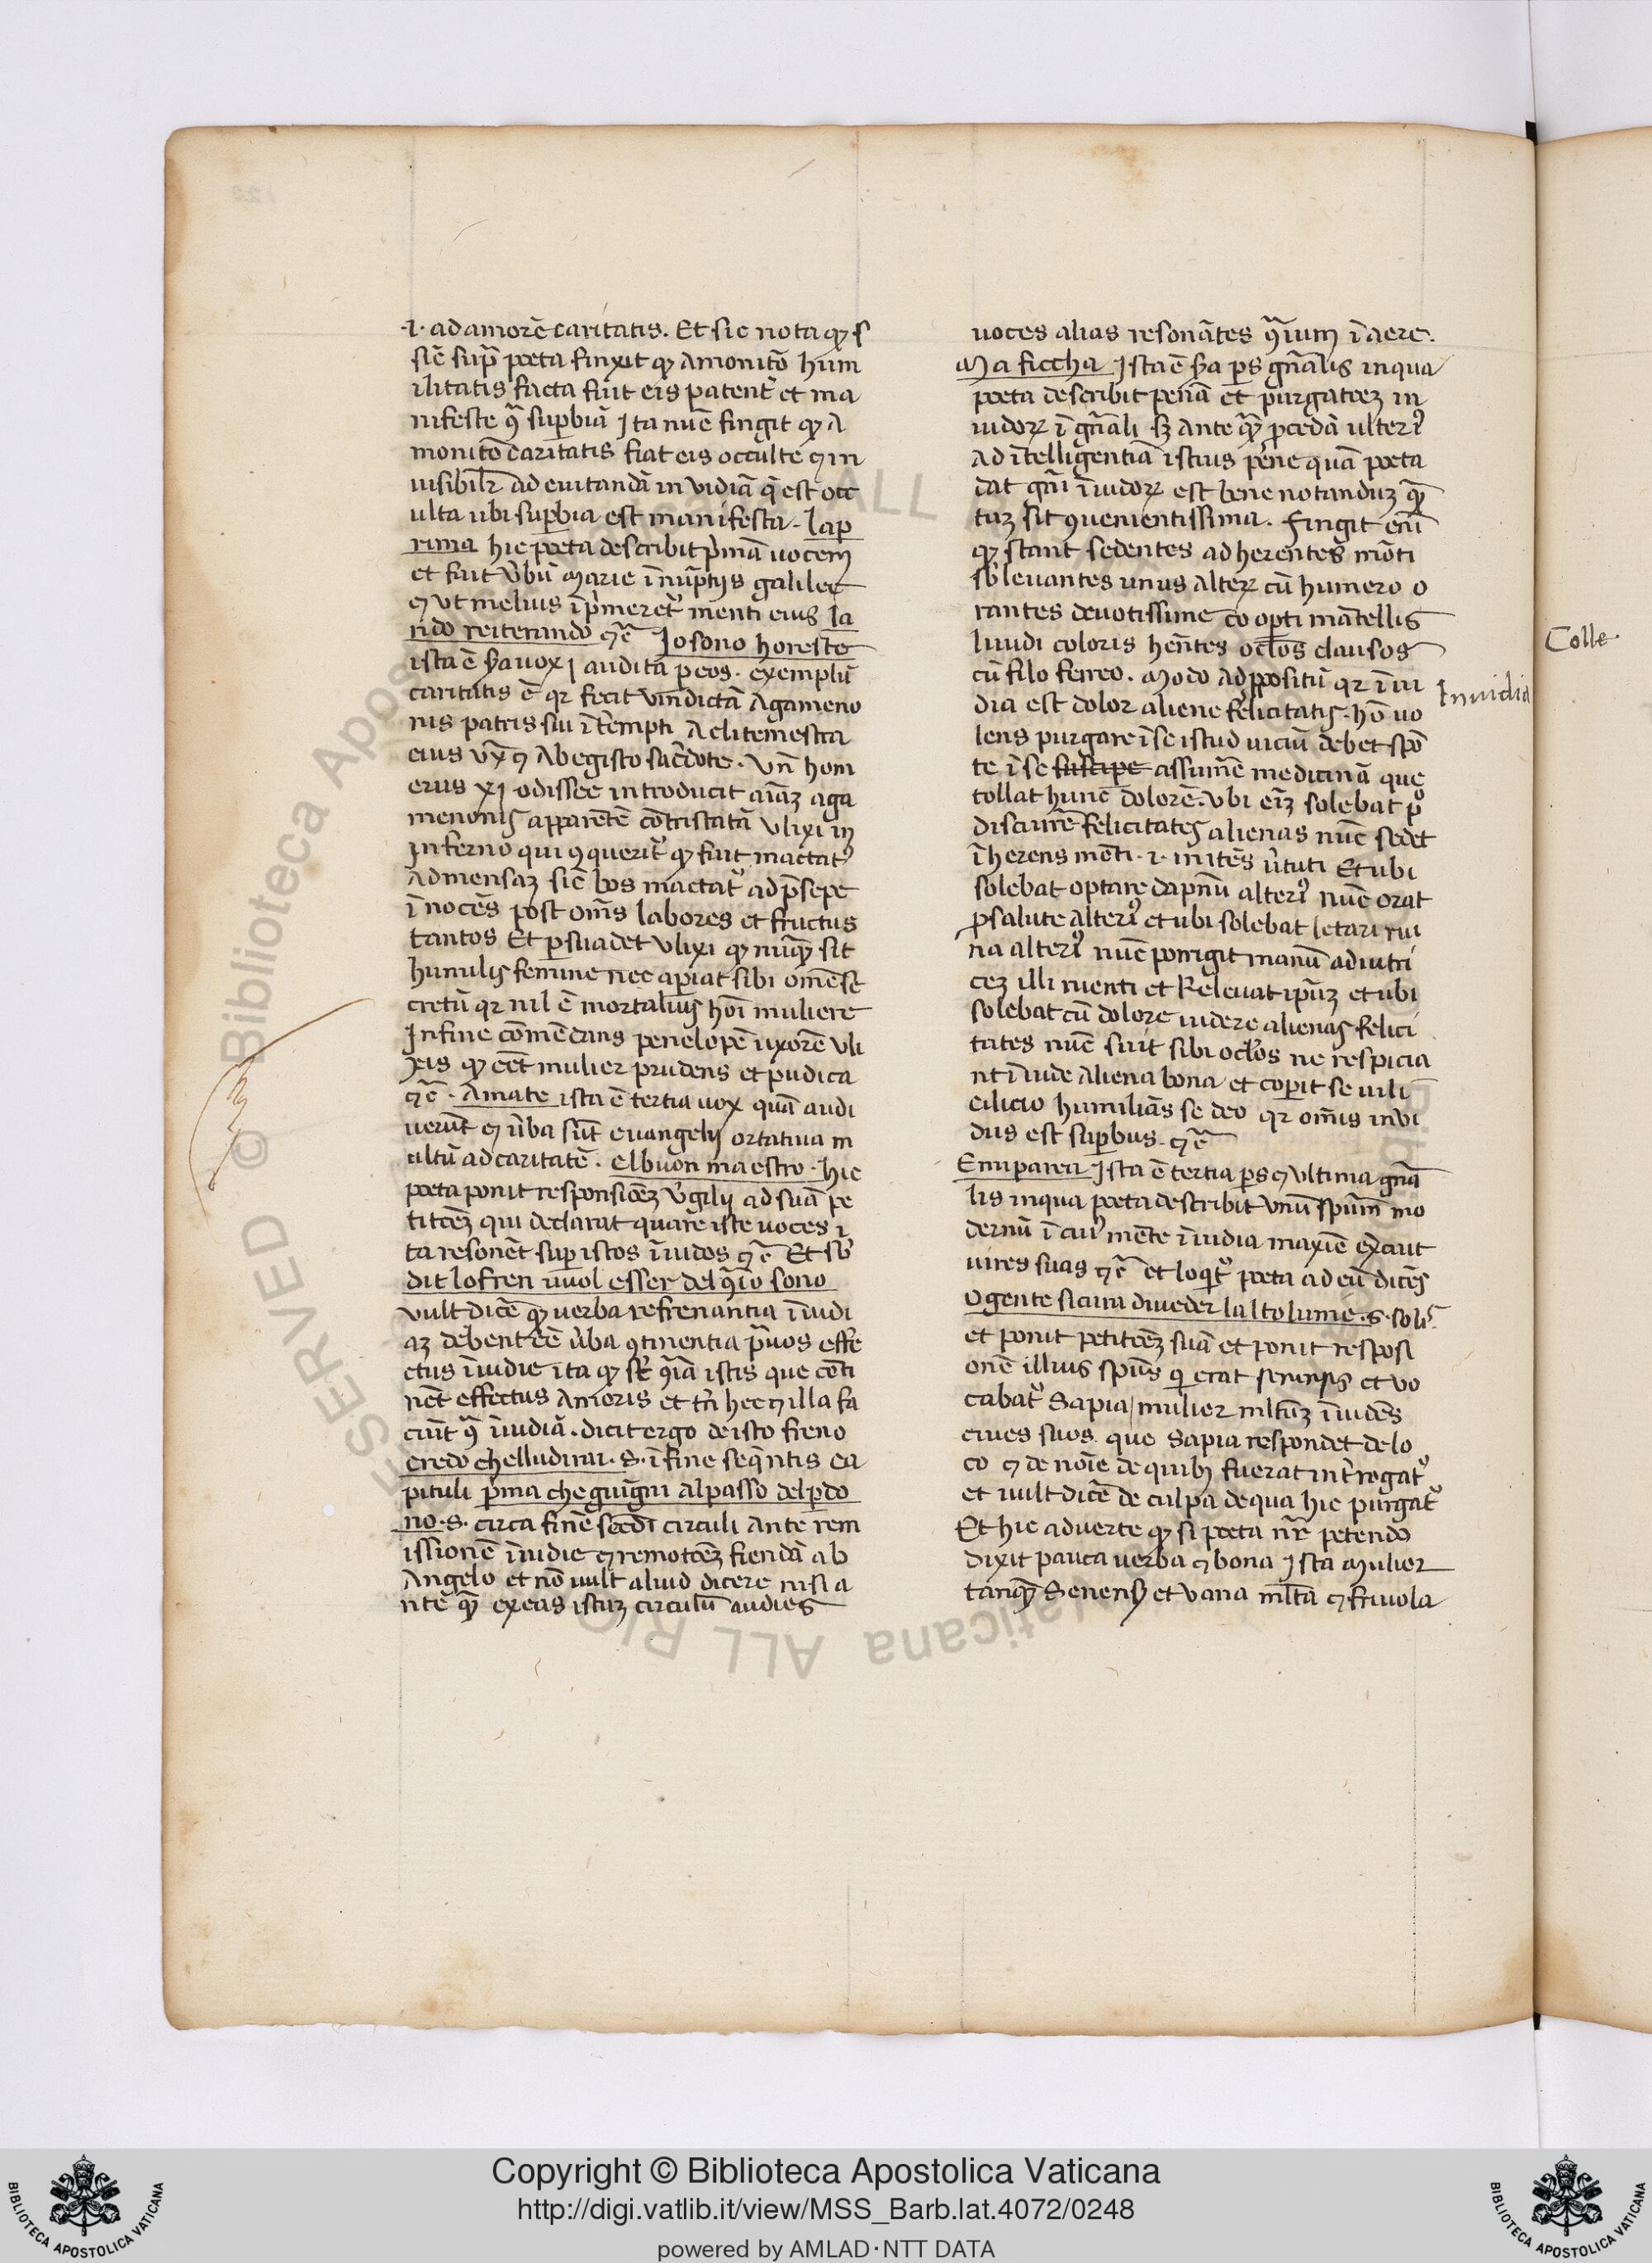 ·i· ad amorē caritatis. Et sic nota ꝙ s
sic̄ sup̄ poeta finxit ꝙ amonitō hum
ilitatis facta fuit eis patent̄ et ma
nifeste ꝯ̄ sup̱biā Ita nūc fingit ꝙ a
monitō caritatis fiat eis occulte ⁊ in
uisibilr̄ ad euitandā in vidiā q̄ est occ
ulta ubi sup̱bia est manifesta. la p
rima hic poeta describit p̄mā uocem
et fuit ūbū marie ī nuptijs galilee
⁊ ut melius īp̄meret᷑ menti eius la
rido reiterando ⁊c̄ Io sono horeste
ista ē sa uox j audita p̱ eos. exemplū
caritatis ē qr fecit vindictā Agameno
nis patris sui īt̄empti A clitemestra
eius ux̄ ⁊ Ab egisto sac̄dote. Vn̄ hom
erus xj odissee introducit aīaꝫ aga
menonis apparentē cōtristatā vlixi in
inferno qui ꝯquerit᷑ ꝙ fuit mactat᷑
Ad mensaꝫ sic̄ bos mactat᷑ ad p̄sepe
ī nocēs post om̄s labores et fructus
tantos Et p̱suadet vlixi ꝙ nuꝙ̄ sit
humilis femine nec ap̱iat sibi omē se
cretū qr nil ē mortalius hoī muliere
In fine cōmēdans penelopē uxorē vli
xis ꝙ eēt mulier prudens et pudica
⁊c̄. Amate ista ē tertia uox quā audi
uerūt ⁊ ūba sūt euangelij ortatiua m
ultū ad caritatē. el buon maestro. hic
poeta ponit responsiōeꝫ ūgilij ad suā pe
titōeꝫ qui declarat quare iste uoces i
ta resonēt sup̱ istos īuidos ⁊c̄ Et sb̄
dit lo fren uuol esser del ꝯ̄io sono
vult dicē ꝙ uerba refrenantia īuidi
aꝫ debent eē ūba ꝯtinentia p̄uos effe
ctus īuidie ita ꝙ st̄ ꝯ̄ia istis que cōti
nēt effectus Amoris et tn̄ hec ⁊ illa fa
ciūt ꝯ̄ īuidiā. dicit ergo de isto freno
credo che lludirai. s. ī fine seq̄ntis ca
pituli p̄ma che guigni al passo del p̱do
no. s. circa finē scd̄i circuli Ante rem
issionē īuidie ⁊ remotōeꝫ fiendā ab
Angelo et nō uult aliud dicere nisi a
nte ꝙ̄ exeas istuꝫ circulū audies
uoces alias resonātes ꝯ̄ium ī aere.
Ma ficcha Ista ē sa ps̄ gn̄alis in qua
poeta describit penā et purgatōeꝫ in
uidoꝝ ī gn̄ali. sꝫ ante ꝙ̄ p̱cedā ulteri᷒
ad ītelligentiā istius pēne quā poeta
dat gn̄i īuidoꝝ est bene notanduꝫ ꝙ̄
tuꝫ sit ꝯuenientissima. Fingit enī
ꝙ stant sedentes adherentes mōti
sb̄leuantes unus alteꝝ cū humero o
rantes deuotissime coop̱ti mātellis
liuidi coloris hēntes oc̄los clausos
cū filo ferreo. Modo ad ꝓpositū qr īui
dia est dolor aliene felicitatis. hō uo
lens purgare ī se istud uiciū debet spō
te ī se suscipe assumē medicinā que
tollat hunc dolorē. vbi eīꝫ solebat p̊
discurre felicitates alienas nūc sedet
īherens mōti ·i· initēs ūtuti Et ubi
solebat optare dapnū alteri᷒ nūc orat
ꝓ salute alteri᷒ et ubi solebat letari rui
na alteri᷒ nūc porrigit manū adiutri
ceꝫ illi ruenti et Releuat ip̄uꝫ et ubi
solebat cū dolore uidere alienas felici
tates nūc suit sibi oc̄los ne respicia
nt īuide aliena bona et cop̱it se uili
cilicio humiliās se deo qr om̄is inui
dus est sup̱bus. ⁊c̄
E mi parea Ista ē tertia ps̄ ⁊ ultima gn̄a
lis in qua poeta describit unū spūm mo
dernū ī cui᷒ mēte īuidia maxīe ex̱cuit
uires suas ⁊c̄ et loqit᷑ poeta ad eū dicēs
O gente sicura di ueder lalto lume. s. solis
et ponit petitōeꝫ suā et ponit respōsi
onē illius spūs qi erat senensis et uo
cabat᷑ Sapia mulier ml̄tuꝫ īuidēs
ciues suos. que Sapia respondet de lo
co ⁊ de noīe de quibꝫ fuerat int̄rogat᷑
et uult dicē de culpa de qua hic purgat᷑
Et hic aduerte ꝙ si poeta nr̄ petendo
dixit pauca uerba ⁊ bona Ista Mulier
tanꝙ̄ Senensis et vana ml̄ta ⁊ friuola
Inuidia
Colle
Copyright © Biblioteca Apostolica Vaticana
http://digi.vatlib.it/view/MSS_Barb.lat.4072/0248
powered by AMLAD·NTT DATA
BIBLIOTECA APOSTOLICA VATICANA
BIBLIOTECA APOSTOLICA VATICANA